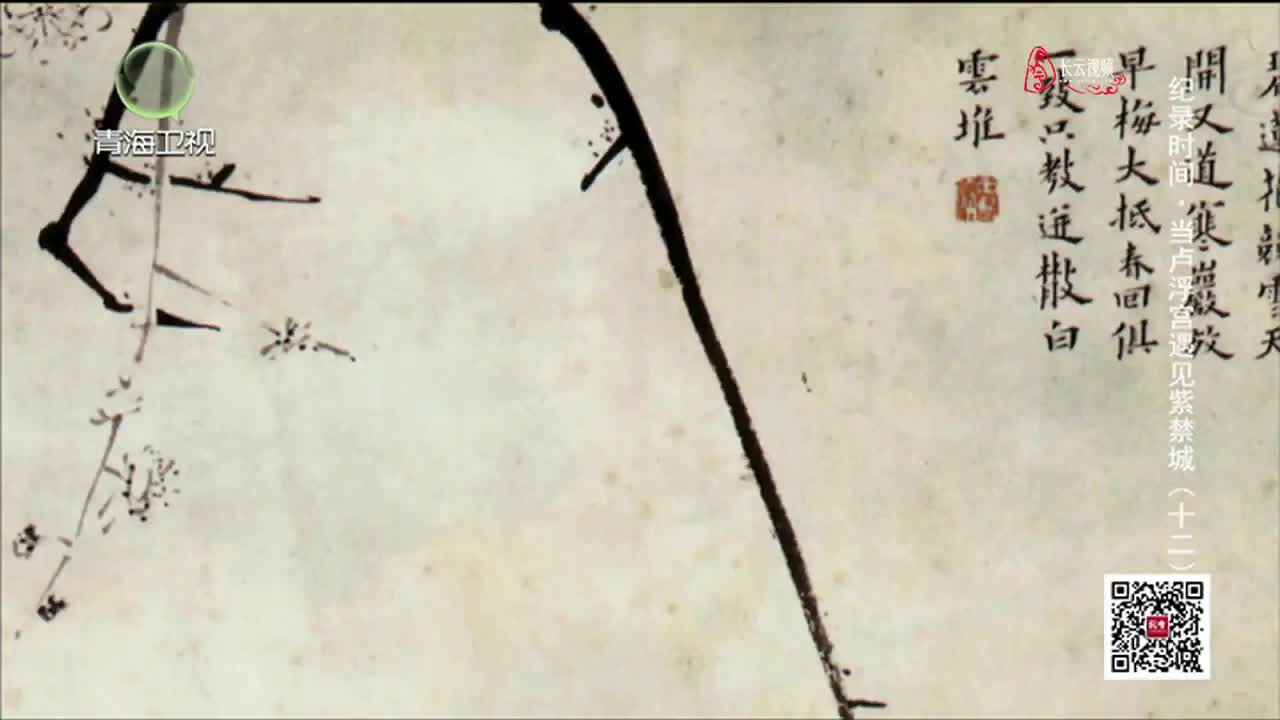 青海卫视
长云视频
纪录时间·当卢浮宫遇见紫禁城（十二）
雪天
開又道寒巖放
早梅大抵春回俱
一致只教迸散白
雲堆